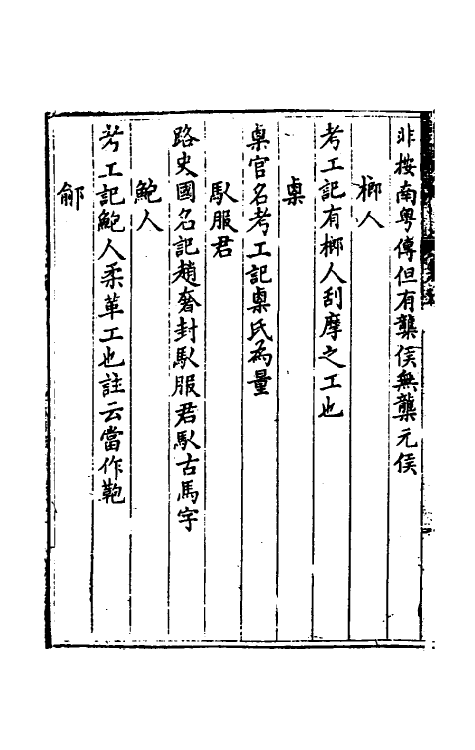 非按南粤傳但有龔侯無龔元侯
楖人
考工記有楖人刮摩之工也
㮚
㮚官名考工記㮚氏為量
馭服君
路史國名記趙奢封馭服君馭古馬字
鮑人
考工記鮑人柔革工也註云當作鞄
俞阝